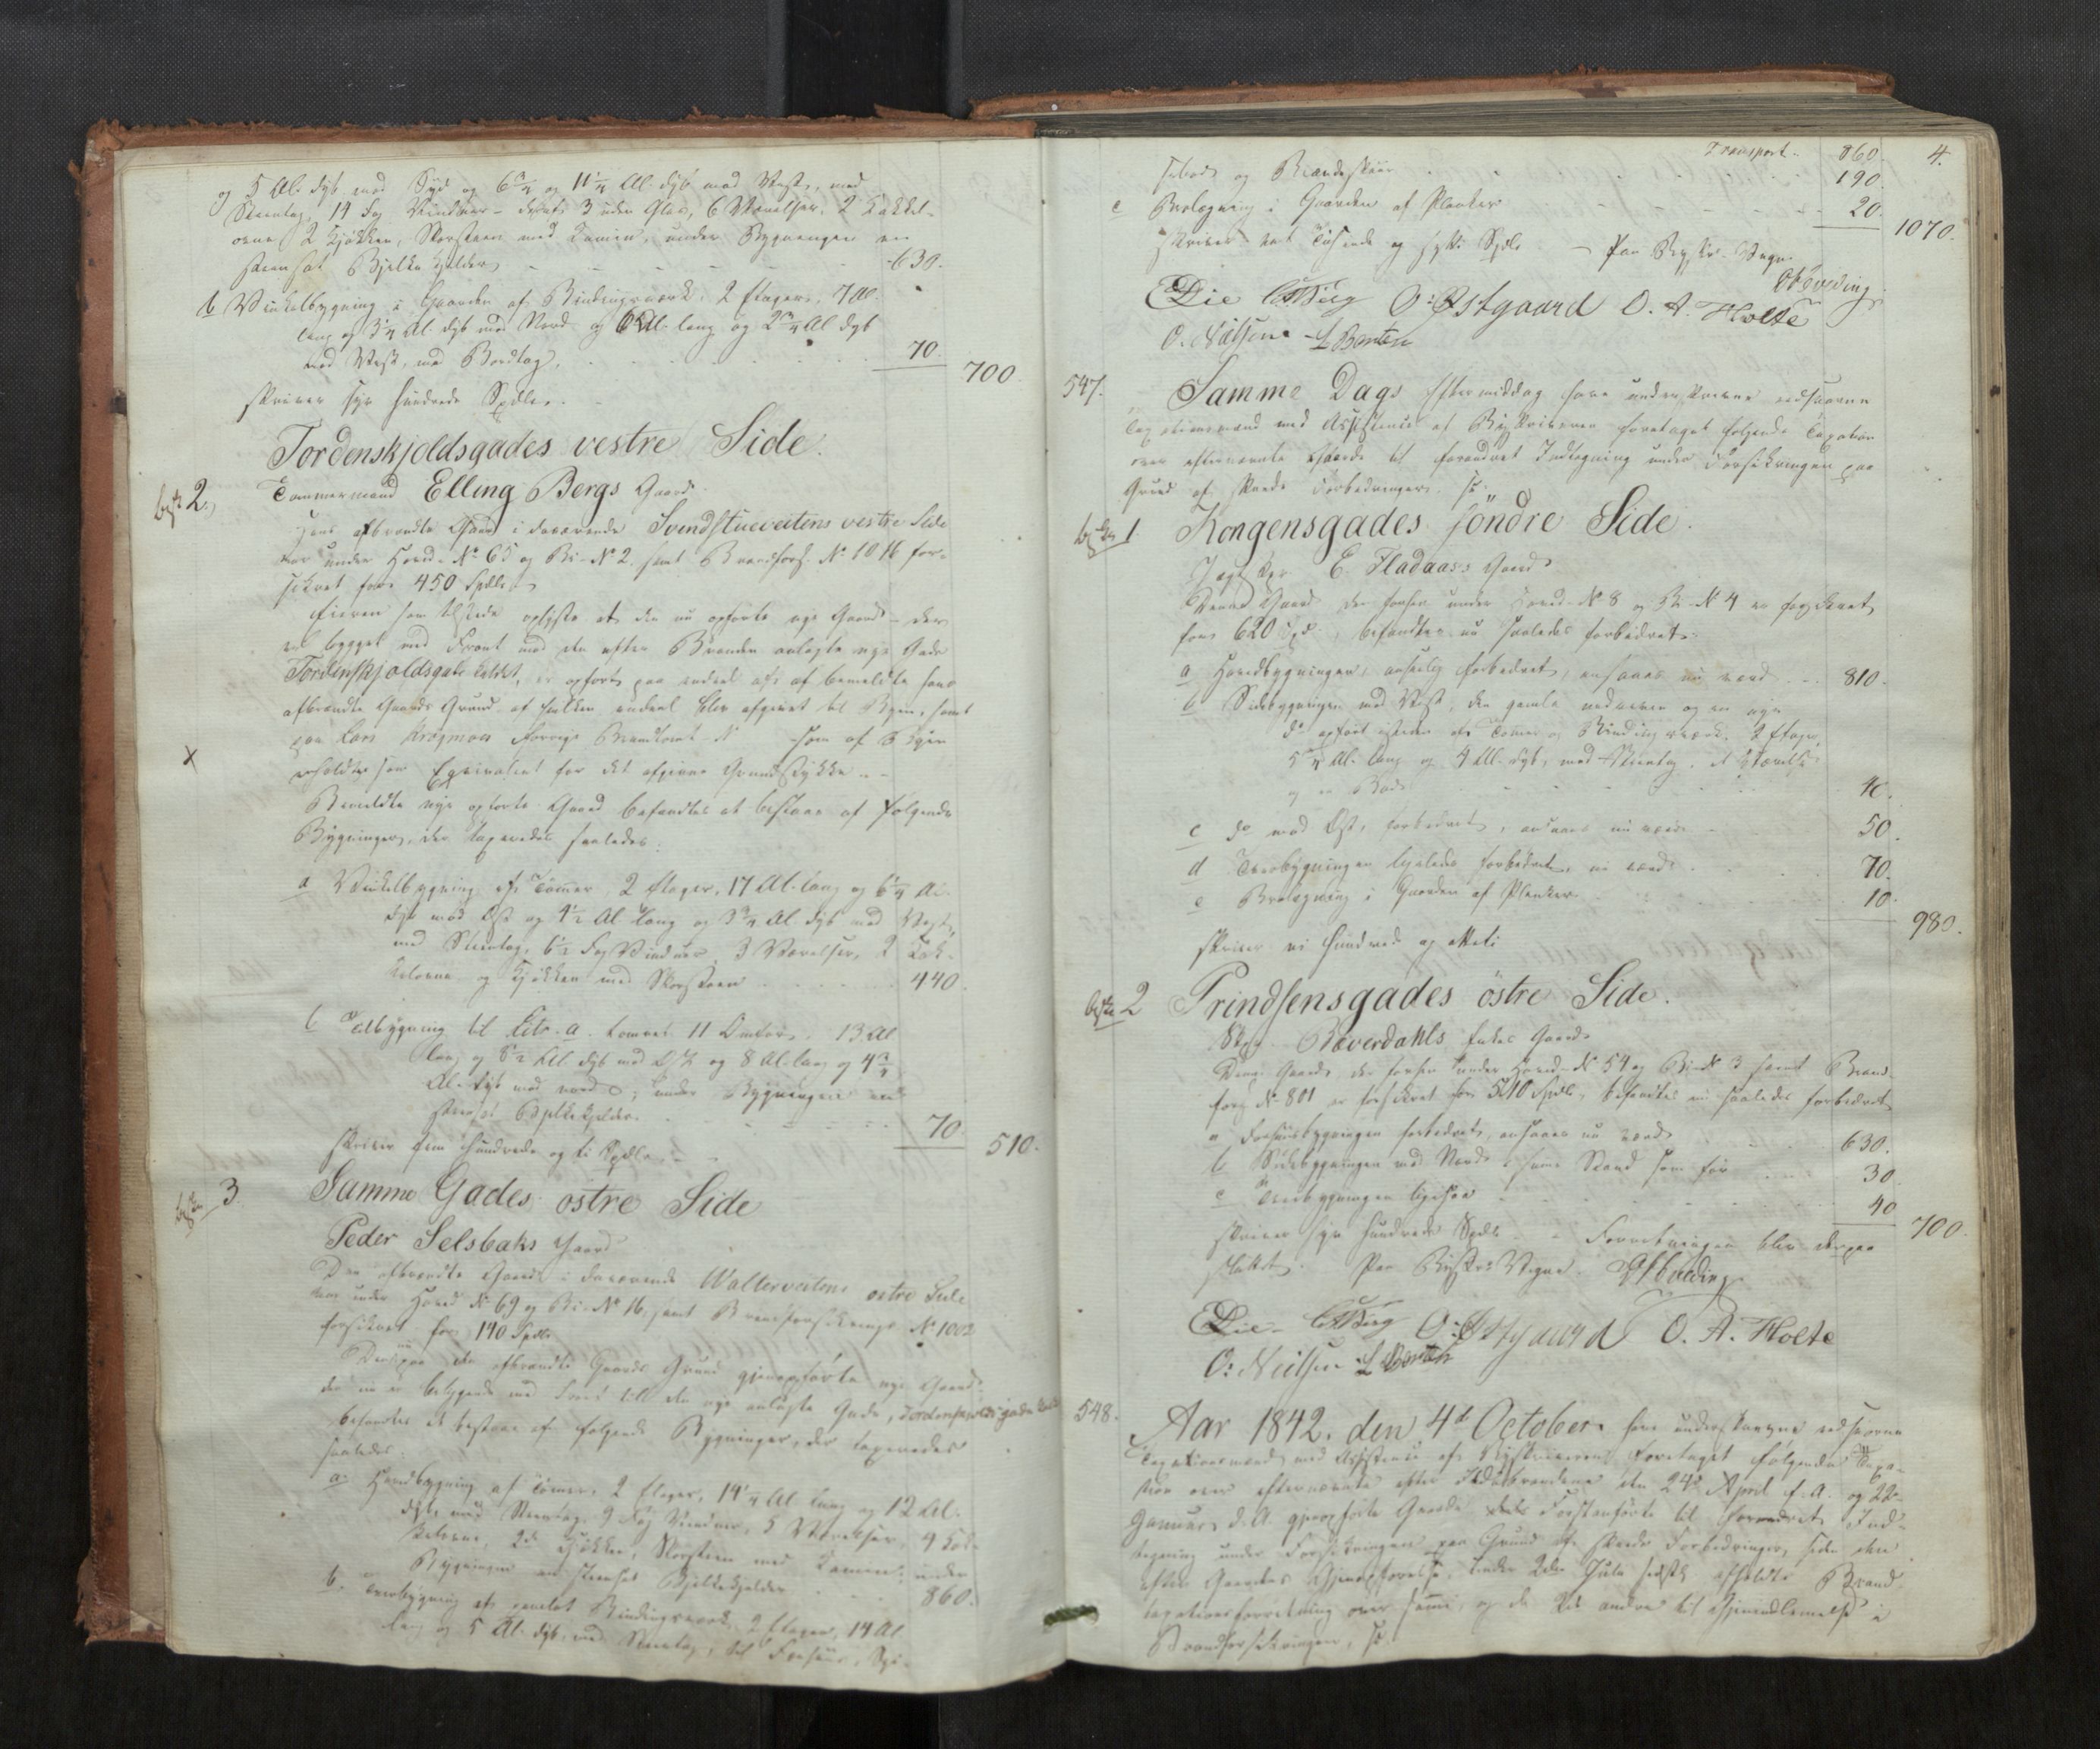 og 5 Al. dyb mod Syd og 6 3/4 og 11 1/4 Al. dyb mod Vest, med
Steentag, 14 Fag Vinduer – deraf 3 uden Glas, 6 Værelser, 2 Kakkel-
ovne, 2 Kjøkken, Skorsteen med Kamin, under Bygningen en
steensat Bjelke Kjelder 630.
b Vinkelbygning i Gaarden af Bindingsværk, 2 Etager, 7 Al.
lang og 3 1/4 Al. dyb mod Nord og Al. lang og 2 3/4 Al dyb
mod Vest, med Bordtag. 70. 700
skriver syv hundrede Spdlr.
Tordenskjoldsgades vestre Side.
2. Tømmermand Elling Bergs Gaard.
Hans afbrændte Gaard i daværende Svendstueveitens vestre Side
var under Hoved-No 65 og Bi-No 2. samt Brandfors. No 1016 for-
sikret for 450 Spdlr.
Eieren som tilstede oplyste at den nu opførte nye Gaard – der
er bygget med Front mod den efter Branden anlagte nye Gade
Tordenskjoldsgade kaldet, er opført paa endeel af bemeldte hans
afbrændte Gaards Grund af hvilken endeel blev afgivet til Byen, samt
paa Lars forrige Brandtomt No – som af Byen
erholdtes som Eqvivalent for det afgivne Grundstykke. –
x
Bemeldte nye opførte Gaard befandtes at bestaae af følgende
Bygninger, der taxeredes saaledes:
a Vinkelbygning af Tømmer 2 Etager, 17 Al. lang og 6 1/4 Al.
dyb mod Øst og 9 1/2 Al. lang og 3 3/4 Al. dyb mod Vest,
med Steentag, 6 1/2 Fag Vinduer, 3 Værelser, 2 Kak-
kelovne og Kjøkken med Skorsteen 440.
b Tilbygning til Litr. a. tømret 11 Omfar. 13 Al
lang og 5 1/2 Al. dyb mod Øst og 8 Al. lang og 4 3/4
Al. dyb mod Nord; under Bygningen en
steensat Bjelkekjelder. 70. 510.
skriver fem hundrede og ti Spdlr. –
3 Samme Gades östre Side
Peder Selsbaks Gaard
Den afbrændte Gaard i daværende Wallerveitens östre Side
var under Hoved No 69 og Bi-No 16, samt Brandforsikrings No 1002
forsikret for 140 Spdlr.
Den paa den afbrændte Gaards Grund gjenopførte nye Gaard
der nu er beliggende med Front til den nye anlagte Gade, Tordenskjoldsgade kaldet
befandtes at bestaae af følgende Bygninger, der taxeredes
saaledes.
a. Hovedbygning af Tømmer, 2 Etager, 14 1/4 Al. lang og 12 Al.
dyb, med Steentag, 9 Fag Vinduer, 5 Værelser, 4 Kak-
kelovne, 2de Kjøkken, Skorsteen med Kamin, under
Bygningen en steensat Bjelkekjelder 860.
b. Tverbygning af panelet Bindingsværk, 2 Etager, 14 Al
lang og 5 Al. dyb, med Steentag,
Transport. 860. 4.
og Brændeskuur 190.
c Brolægning i Gaarden af Planker 20. 1070.
skriver eet Tusende og sytti Spdlr – Paa Byskr. Vegne.
Die O: Östgaard O. A. Holte
O. Neilsen
547. Samme Dags Eftermiddag have underskrevne edsvorne
Taxationsmænd med Assistence af Byskriveren foretaget følgende Taxation
over efternævnte Gaarde til forandret Indtegning under Forsikringen paa
Grund af skeede Forbedringer,
1 Kongensgades söndre Side.
E. Fladaass Gaard
Denne Gaard der forhen under Hoved-No 8 og Bi-No 4 er forsikret
for 620 Spd., befandtes nu saaledes forbedret:
a Hovedbygningen, anseelig forbedret, ansaaes nu værd 810.
b Sidebygningen mod Vest, den gamle nedreven og en nye
do opført istedet af Tømmer og Bindingsværk, 2 Etager,
5 3/4 Al. lang og 4 Al. dyb, med Steentag, et Værelse
og en Bod
c do mod Øst, forbedret, ansaaes nu værd 50.
d Tverbygningen ligeledes forbedret, nu værd 70.
e Brolægning i Gaarden af Planker 10. 980.
skriver ni hundrede og otteti
2 Prindsensgades östre Side.
Bæverdahls Enkes Gaard
Denne Gaard, der forhen under Hoved-No 54 og Bi-No 3 samt Brand-
fors. No 801 er forsikret for 540 Spdlr, befandtes nu saaledes forbedret
a Forhuusbygningen forbedret, ansaaes nu værd 630.
b Sidebygningen mod Nord i samme Stand som før 30.
c Tverbygningen ligesaa 40 700.
skriver syv hundrede Spdlr. – Forretningen blev derpaa
sluttet. Paa Byskr: Vegne.
Die O: Östgaard O. A. Holte
O: Neilsen
548. Aar 1842. den 4de October have underskrevne edsvorne
Taxationsmænd med Assistence af Byskriveren foretaget følgende Taxa-
tion over efternævnte efter Ildsbrandene den 24de April f. A. og 22de
Januar d. A. gjenopførte Gaarde Førstanførte til forandret Ind-
tegning under Forsikringen paa Grund af skeede Forbedringer, siden den
efter Gaardens Gjenopførelse, under 2den Juli sidstl. afholdte Brand-
taxationsforretning over samme, og de andre til Gjenindlemmelse i
Brandforsikringen,